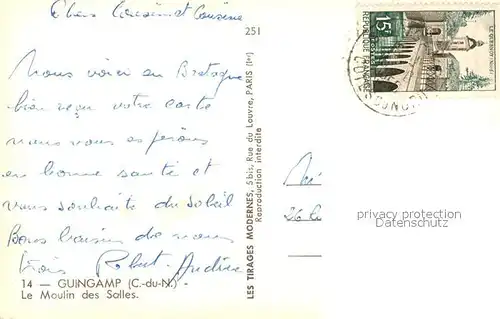 Chers Cousin et Cousine
Nous voici en Bretagne
bien reçu votre carte
nous vous espérons
en bonne santé et
vous souhaite du soleil
Bons baisers de nous
trois Robert - Andrée
14 — GUINGAMP (C.-du-N.) -
Le Moulin des Salles.
251
LES TIRAGES MODERNES, 5 bis, Rue du Louvre, PARIS (Ier)
Reproduction interdite
15F
REPUBLIQUE FRANÇAISE
LE QUESNOY (NORD)
privacy protection
Datenschutz
26